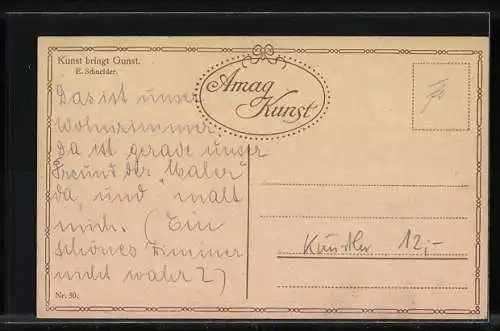 Kunst bringt Gunst.
E. Schneider.
Amag
Kunst
Das ist unser
Wohnzimmer.
Da ist gerade unser
Freund der "Maler"
da, und malt
mich. (Ein
schönes Zimmer
nicht wahr?)
Künstler 12,-
Nr. 30.